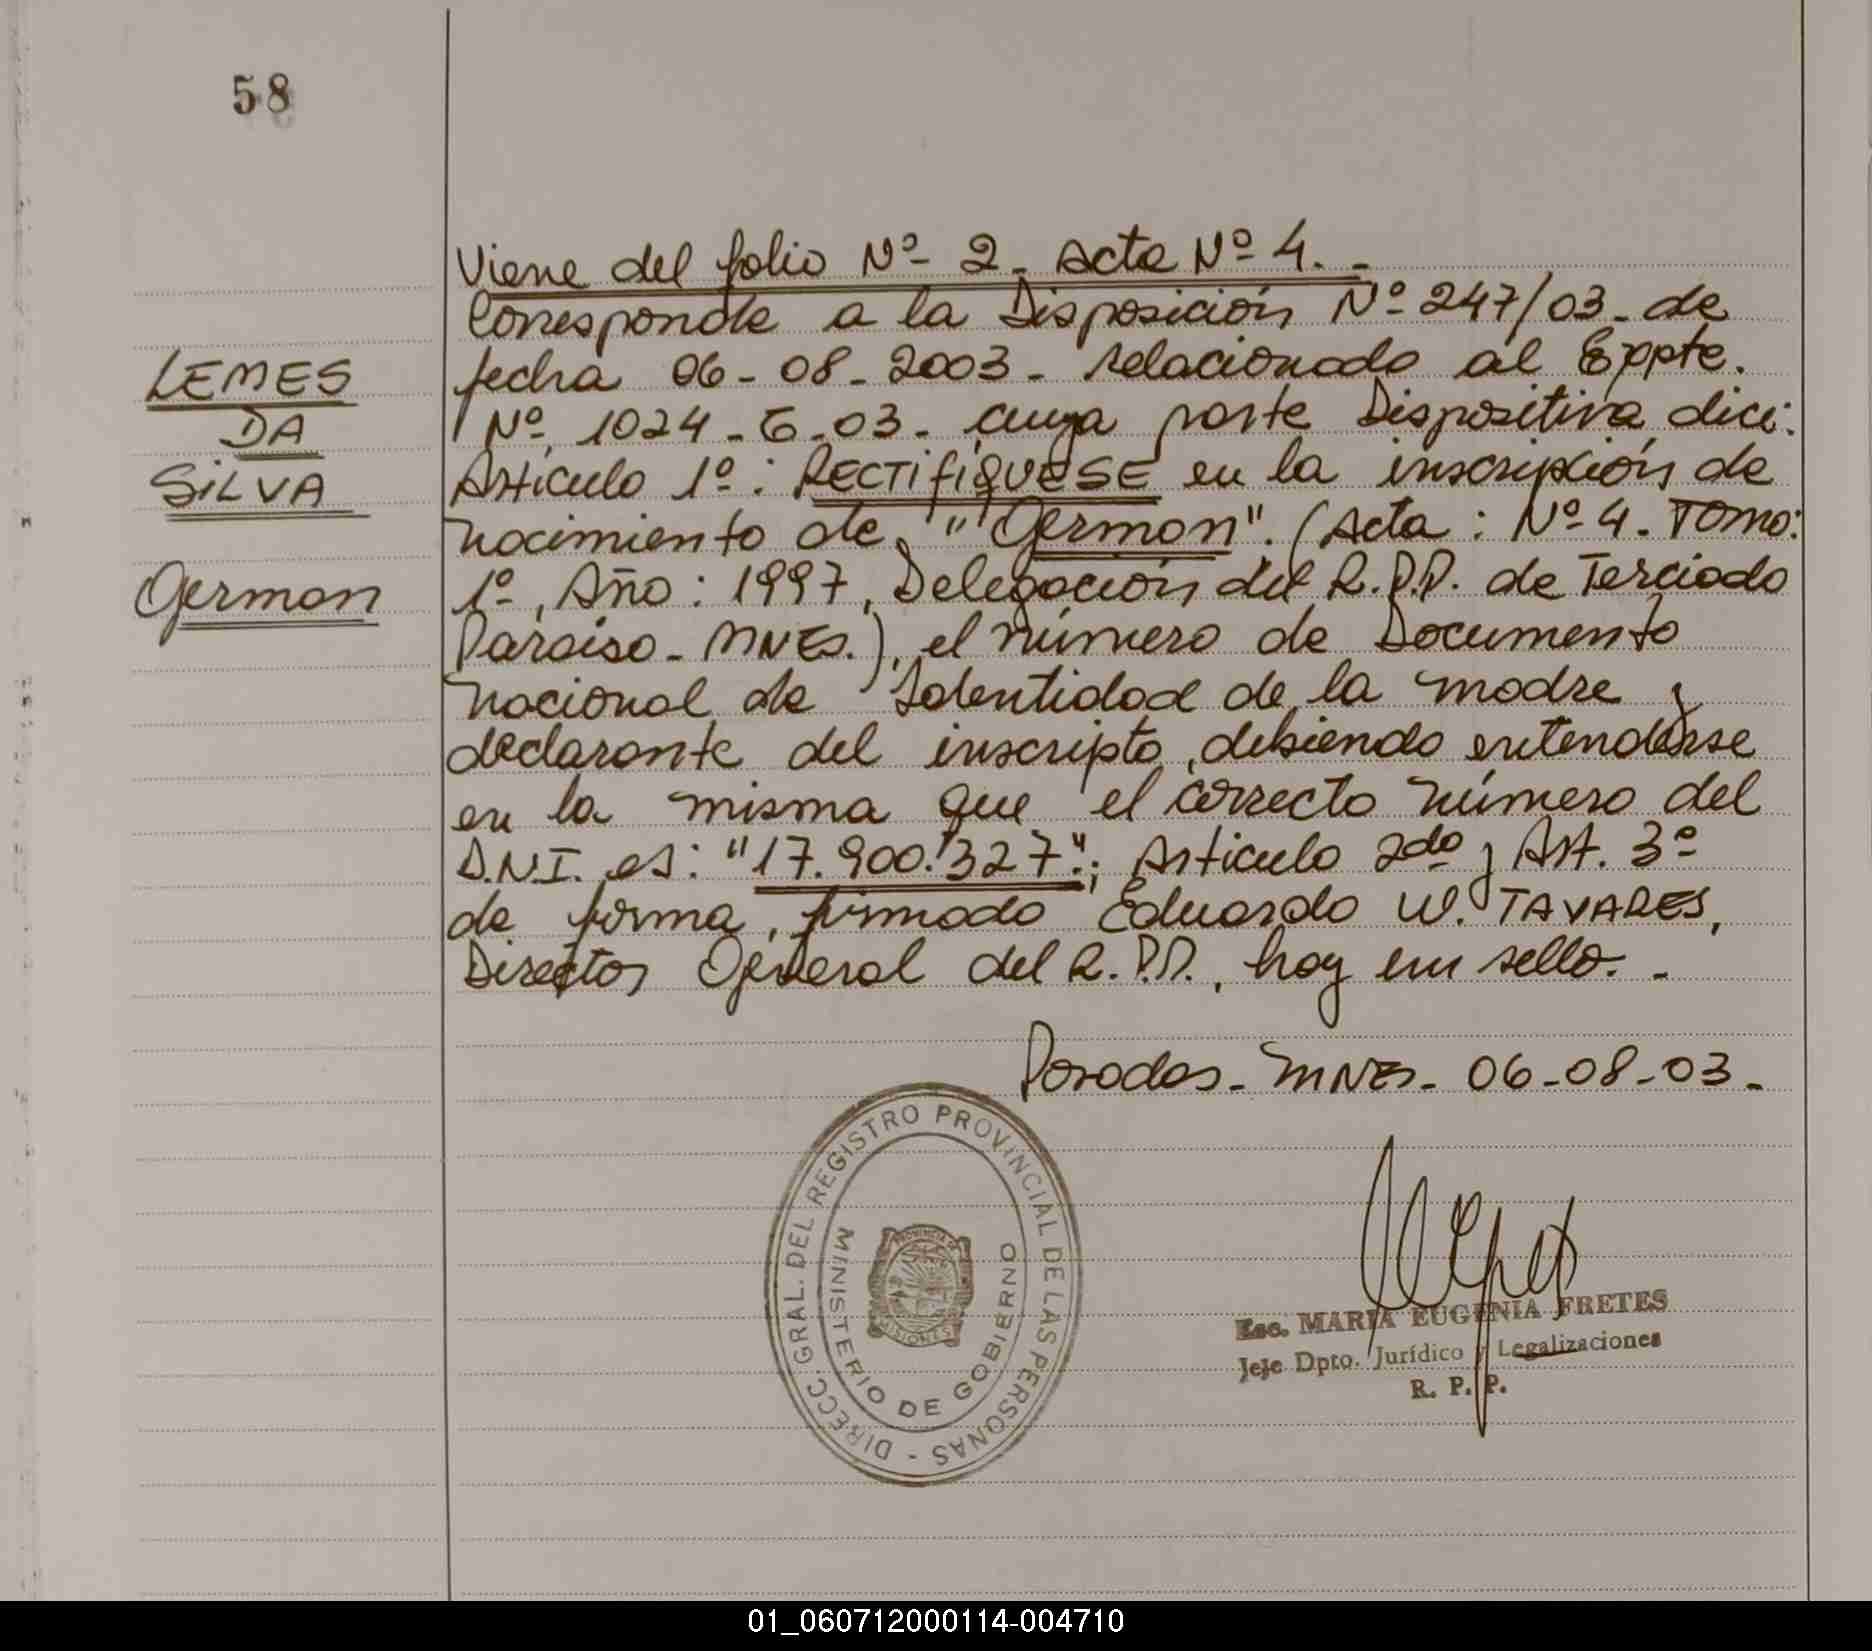 58
Viene del folio Nº 2. Acta Nº 4. -
Corresponde a la Disposición Nº 247/03. de
fecha 06-08-2003- relacionado al Eppte.
Nº 1024-G-03- cuya parte Dispositiva dice:
Artículo 1º: RECTIFÍQUESE en la inscripción de
nacimiento de "German". (Acta: Nº 4. Tomo:
1º, Año: 1997, Delegación del R.P.P. de Terciado
Paraíso- MNES.), el número de Documento
nacional de Identidad de la madre y
declarante del inscripto, debiendo entenderse
en la misma que el correcto número del
D.N.I. es: "17.900.327".; Artículo 2do y Art. 3º
de forma, firmado Eduardo W. TAVARES,
Director General del R.P.P., hay un sello. -
Posadas- MNES- 06-08-03-
LEMES
DA
SILVA
German
DIRECC. GRAL. DEL REGISTRO PROVINCIAL DE LAS PERSONAS -
MINISTERIO DE GOBIERNO
PROVINCIA DE
MISIONES
Esc. MARIA EUGENIA FRETES
Jefe Dpto. Jurídico y Legalizaciones
R. P. P.
01_060712000114-004710